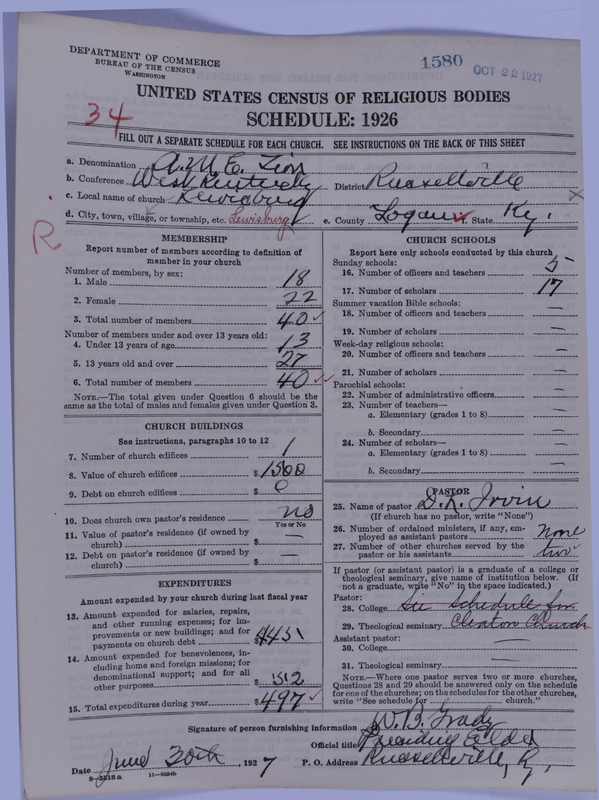 DEPARTMENT OF COMMERCE
BUREAU OF THE CENSUS
WASHINGTON
1580 OCT 22 1927
UNITED STATES CENSUS OF RELIGIOUS BODIES
34 SCHEDULE: 1926
FILL OUT A SEPARATE SCHEDULE FOR EACH CHURCH. SEE INSTRUCTIONS ON THE BACK OF THIS SHEET
a. Denomination A.M.E. Zion
b. Conference West Kentucky District Russellville
c. Local name of church Lewisburg
d. City, town, village, or township, etc. Lewisburg e. County Logan f. State Ky.
R
MEMBERSHIP
Report number of members according to definition of
member in your church
Number of members, by sex:
1. Male 18
2. Female 22
3. Total number of members 40
Number of members under and over 13 years old:
4. Under 13 years of age 13
5. 13 years old and over 27
6. Total number of members 40
NOTE.—The total given under Question 6 should be
same as the total of males and females given under Question 3.
CHURCH BUILDINGS
See instructions, paragraphs 10 to 12
7. Number of church edifices 1
8. Value of church edifices $1500
9. Debt on church edifices $ 0
10. Does church own pastor's residence no
Yes or No
11. Value of pastor's residence (if owned by
church) $ —
12. Debt on pastor's residence (if owned by
church) $ —
EXPENDITURES
Amount expended by your church during last fiscal year
13. Amount expended for salaries, repairs,
and other running expenses; for im-
provements or new buildings; and for
payments on church debt $445
14. Amount expended for benevolences, in-
cluding home and foreign missions; for
denominational support; and for all
other purposes $52
15. Total expenditures during year $497
CHURCH SCHOOLS
Report here only schools conducted by this church
Sunday schools:
16. Number of officers and teachers 5
17. Number of scholars 17
Summer vacation Bible schools:
18. Number of officers and teachers —
19. Number of scholars —
Week-day religious schools:
20. Number of officers and teachers —
21. Number of scholars —
Parochial schools:
22. Number of administrative officers —
23. Number of teachers—
a. Elementary (grades 1 to 8) —
b. Secondary —
24. Number of scholars—
a. Elementary (grades 1 to 8) —
b. Secondary —
PASTOR
25. Name of pastor D.R. Irvin
(If church has no pastor, write "None")
26. Number of ordained ministers, if any, em-
ployed as assistant pastors None
27. Number of other churches served by the
pastor or his assistants two
If pastor (or assistant pastor) is a graduate of a college or
theological seminary, give name of institution below. (If
not a graduate, write "No" in the space indicated.)
Pastor:
28. College See Schedule for
29. Theological seminary Cleaton Church
Assistant pastor:
30. College —
31. Theological seminary —
NOTE.—Where one pastor serves two or more churches,
Questions 28 and 29 should be answered only on the schedule
for one of the churches; on the schedules for the other churches,
write "See schedule for church."
Signature of person furnishing information W.B. Grady
Official title Presiding Elder
Date June 30th, 1927 P. O. Address Russellville, Ky.
8-5518a 11-9064b